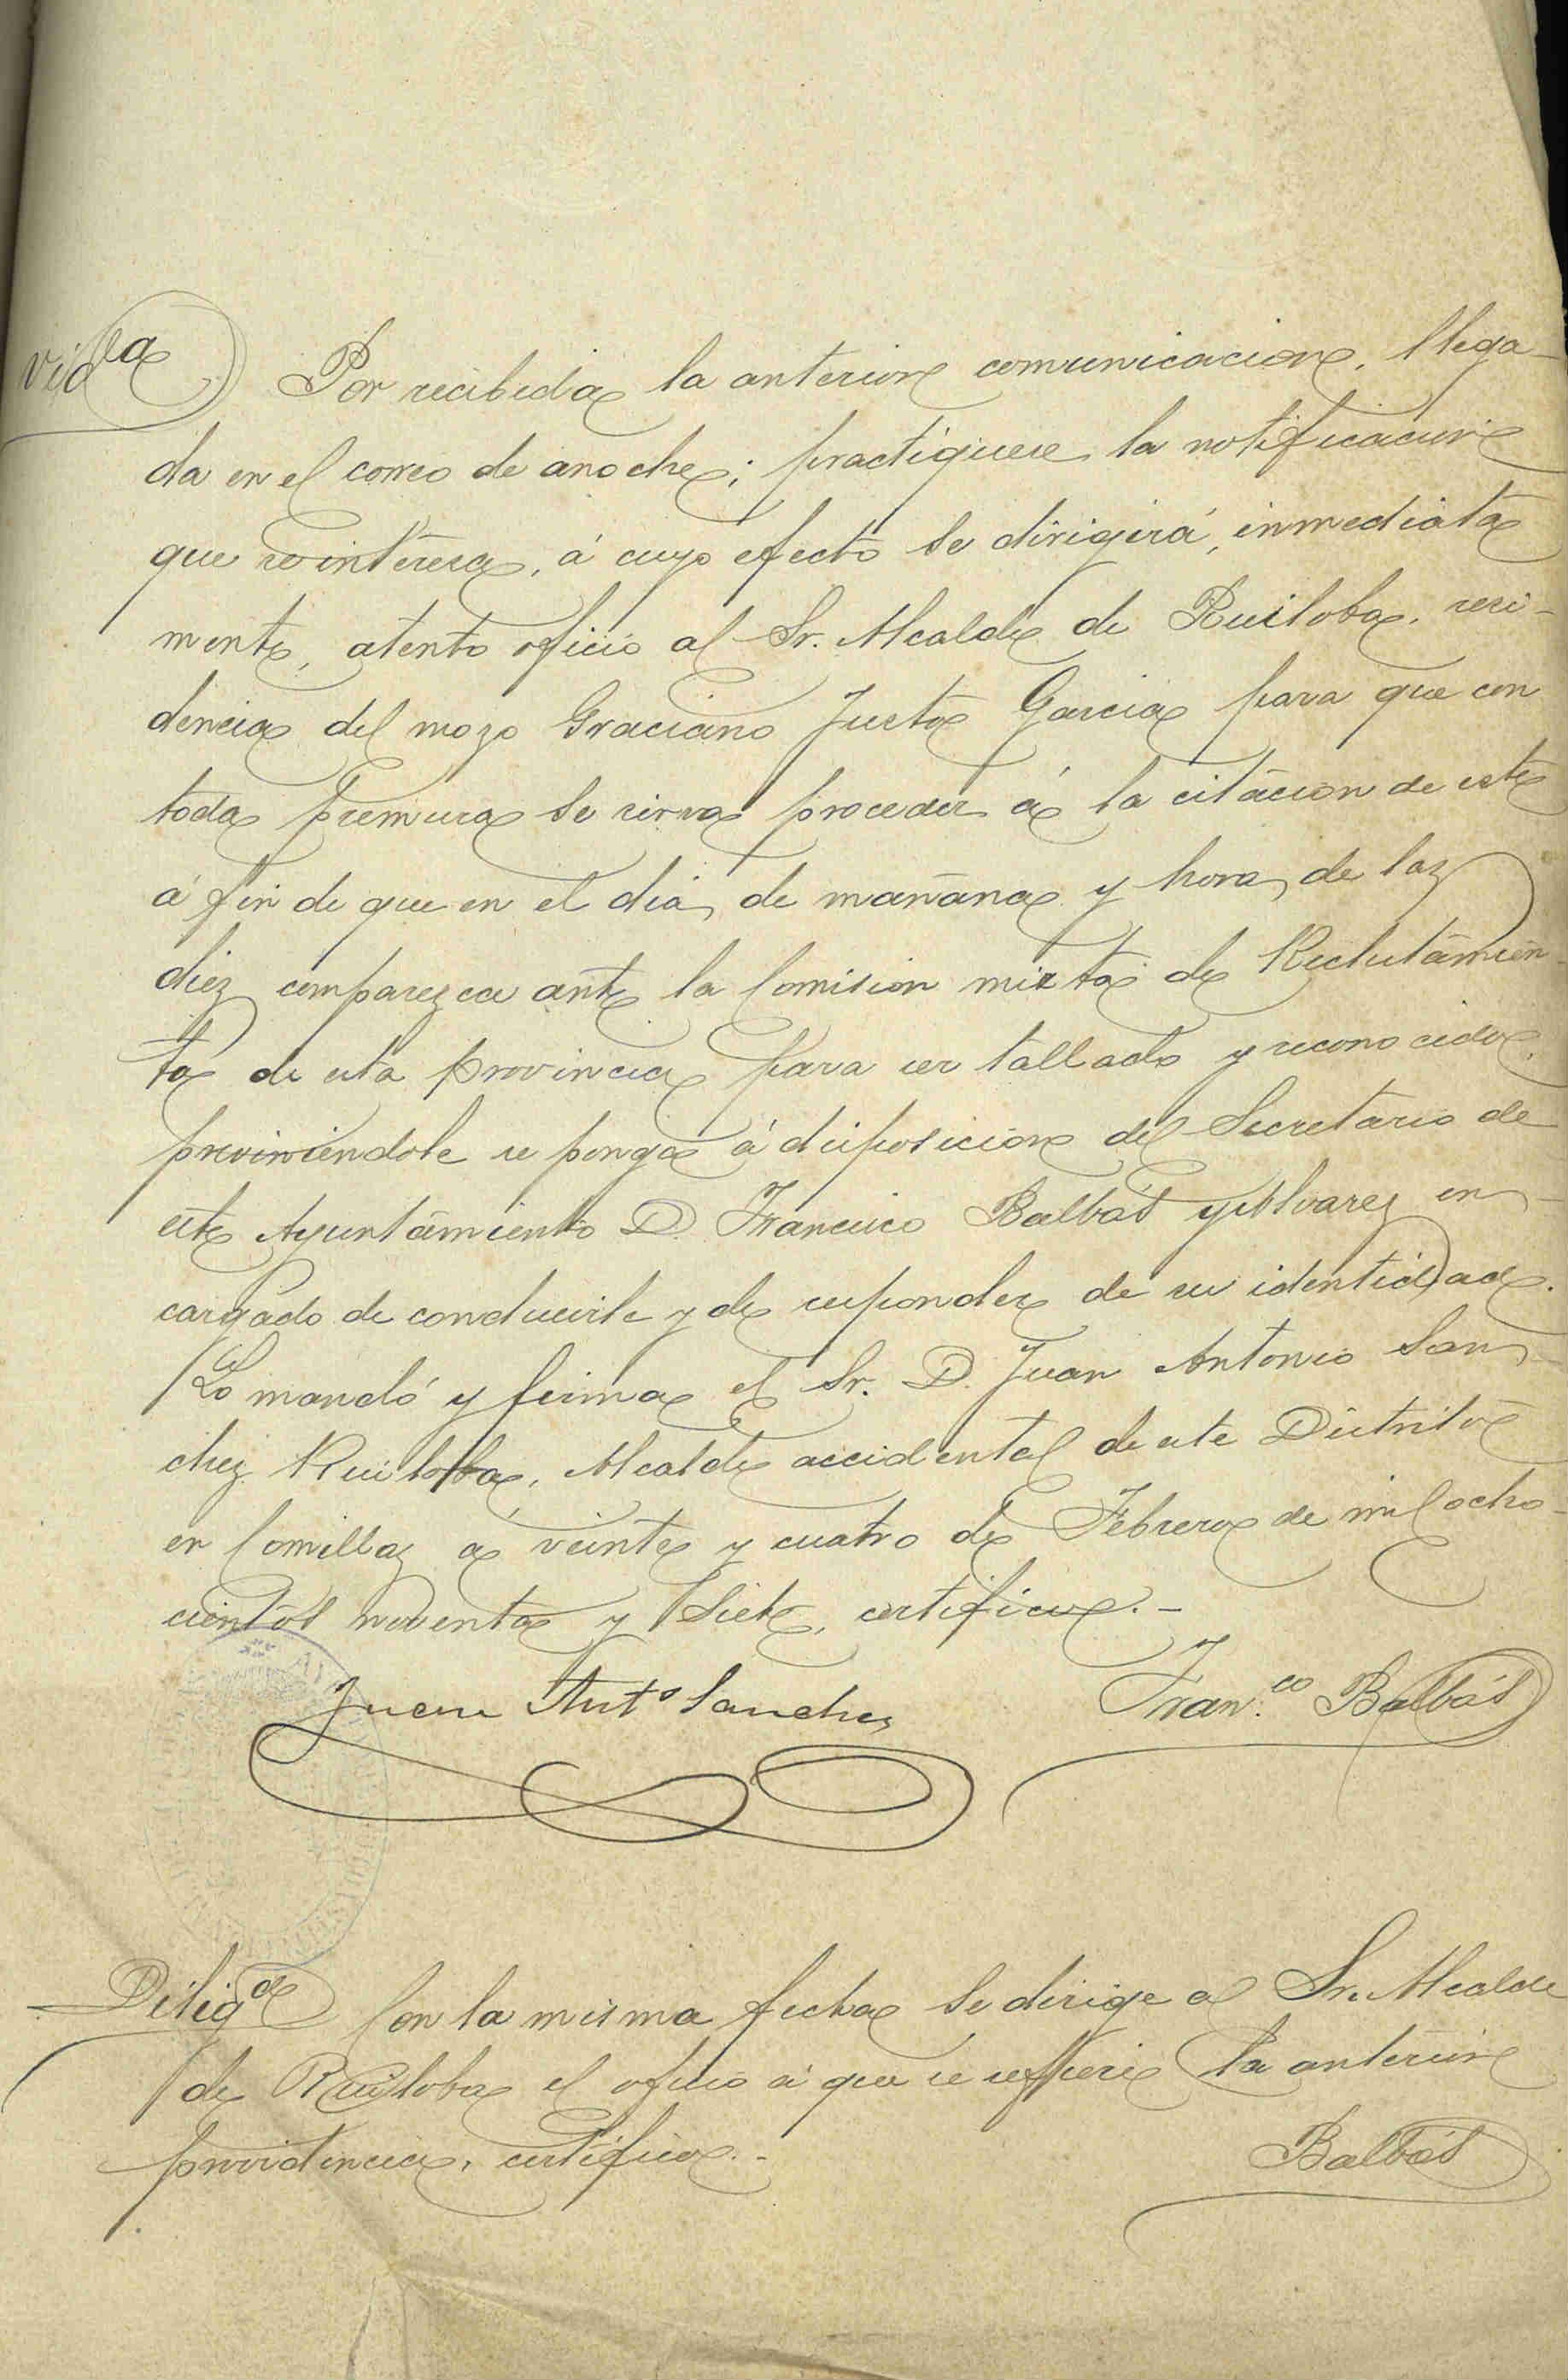 vid.ª Por recibida la anterior comunicacion, llega-
da en el correo de anoche; practiquese la notificacion
que se interesa, á cuyo efecto se dirigirá, inmediata
mente, atento oficio al Sr. Alcalde de Ruiloba, resi-
dencia del mozo Graciano Justo Garcia para que con
toda premura se sirva proceder á la citacion de este
á fin de que en el dia de mañana y hora de las
diez comparezca ante la Comision mixta de Reclutamien-
to de esta provincia para ser tallado y reconocido,
previniendole se ponga á disposicion del Secretario de
este Ayuntamiento D. Francisco Balbás y Alvarez en-
cargado de conducirle y de responder de su identidad.
Lo mandó y firma el Sr. D. Juan Antonio San-
chez Ruiloba, Alcalde accidental de este Distrito
en Comillas a veinte y cuatro de Febrero de mil ocho-
cientos noventa y siete, certifico.-
Juan Antº Sanchez Fran.co Balbás
Diligª Con la misma fecha se dirige al Sr. Alcalde
de Ruiloba el oficio á que se refiere la anterior
providencia, certifico.-
Balbás